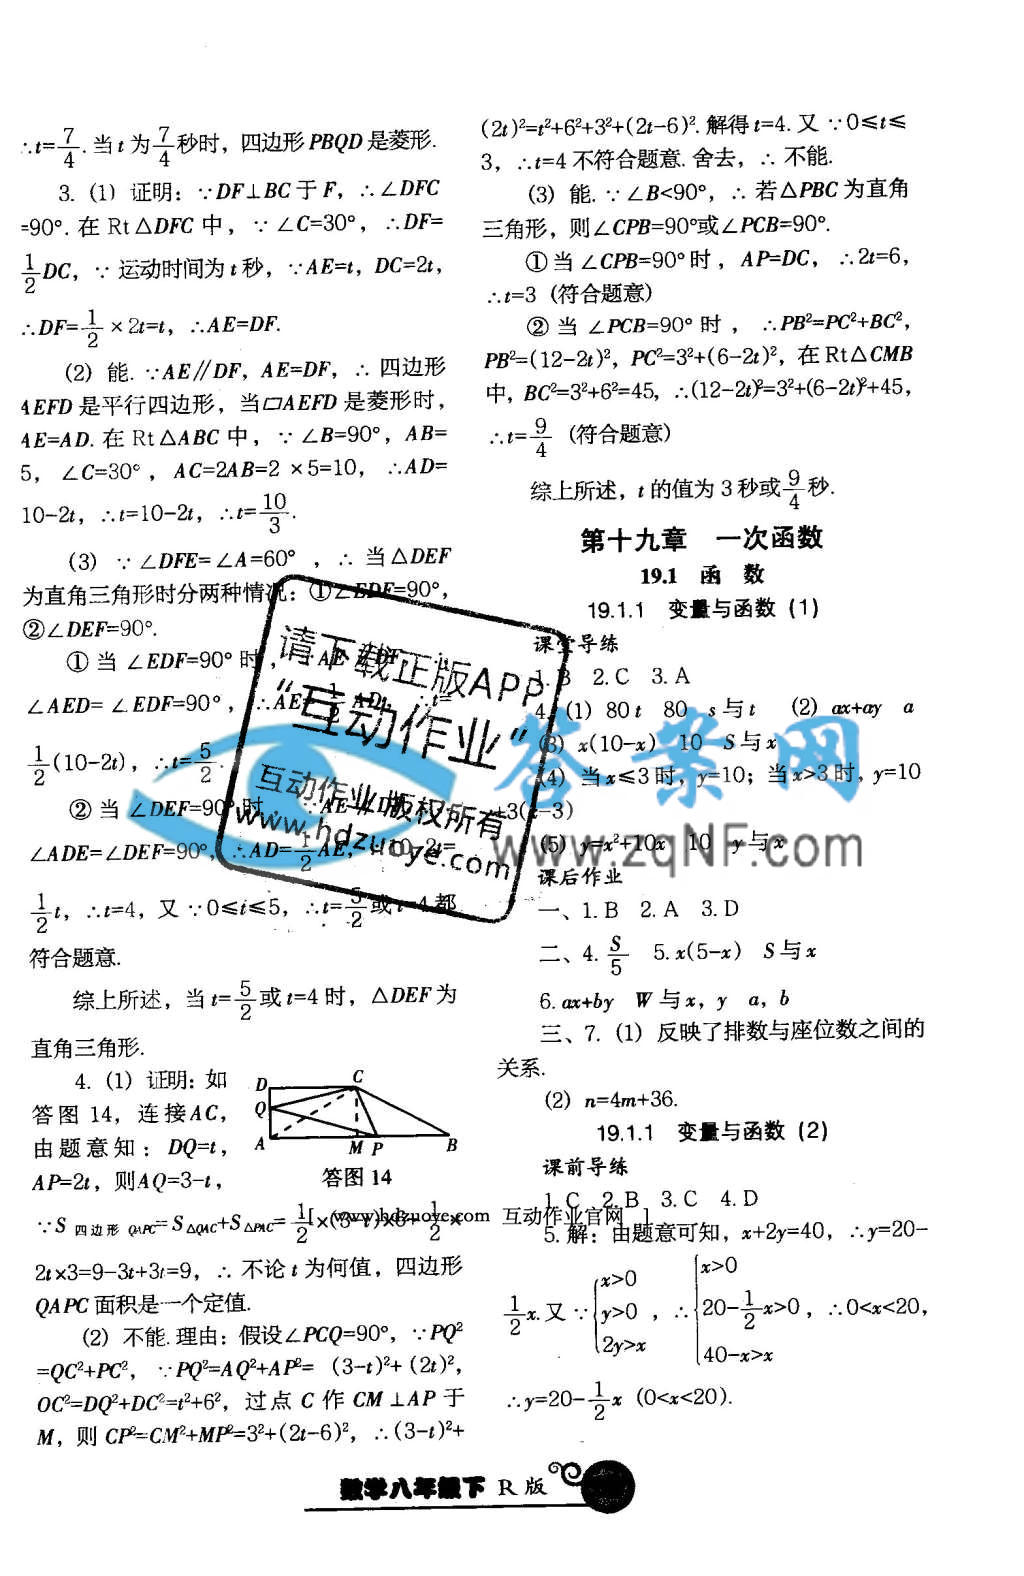 ∴t=7/4. 当 t 为 7/4 秒时，四边形 PBQD 是菱形.
3. (1) 证明：∵DF⊥BC 于 F，∴∠DFC
=90°. 在 Rt△DFC 中，∵∠C=30°，∴DF=
1/2 DC，∵ 运动时间为 t 秒，∵AE=t，DC=2t，
∴DF=1/2×2t=t，∴AE=DF.
(2) 能. ∵AE∥DF，AE=DF，∴ 四边形
AEFD 是平行四边形，当▱AEFD 是菱形时，
AE=AD. 在 Rt△ABC 中，∵∠B=90°，AB=
5，∠C=30°，AC=2AB=2×5=10，∴AD=
10-2t，∴t=10-2t，∴t=10/3.
(3) ∵∠DFE=∠A=60°，∴ 当△DEF
为直角三角形时分两种情况：①∠EDF=90°，
②∠DEF=90°.
① 当 ∠EDF=90° 时，
∠AED=∠EDF=90°，∴AE=1/2 AD，∴t=
1/2(10-2t)，∴t=5/2.
② 当 ∠DEF=90° 时，
∠ADE=∠DEF=90°，∴AD=1/2 AE，∴10-2t=
1/2 t，∴t=4，又 ∵0≤t≤5，∴t=5/2 或 t=4 都
符合题意.
综上所述，当 t=5/2 或 t=4 时，△DEF 为
直角三角形.
4. (1) 证明：如
答图 14，连接AC，
由题意知：DQ=t，
AP=2t，则AQ=3-t，
D C Q A M P B
答图 14
∵S四边形QAPC=S△QAC+S△PAC=1/2×(3-t)×6+1/2×
2t×3=9-3t+3t=9，∴ 不论 t 为何值，四边形
QAPC 面积是一个定值.
(2) 不能. 理由：假设∠PCQ=90°，∵PQ²
=QC²+PC²，∵PQ²=AQ²+AP²=(3-t)²+(2t)²，
QC²=DQ²+DC²=t²+6²，过点 C 作 CM⊥AP 于
M，则 CP²=CM²+MP²=3²+(2t-6)²，∴(3-t)²+
(2t)²=t²+6²+3²+(2t-6)². 解得 t=4. 又 ∵0≤t≤
3，∴t=4 不符合题意. 舍去，∴ 不能.
(3) 能. ∵∠B<90°，∴ 若△PBC 为直角
三角形，则∠CPB=90°或∠PCB=90°.
①当∠CPB=90°时，AP=DC，∴2t=6，
∴t=3 (符合题意)
② 当 ∠PCB=90° 时，∴PB²=PC²+BC²，
PB²=(12-2t)²，PC²=3²+(6-2t)²，在 Rt△CMB
中，BC²=3²+6²=45，∴(12-2t)²=3²+(6-2t)²+45，
∴t=9/4 (符合题意)
综上所述，t 的值为 3 秒或 9/4 秒.
第十九章 一次函数
19.1 函 数
19.1.1 变量与函数 (1)
课堂导练
1. B 2. C 3. A
4. (1) 80t 80 s 与 t (2) ax+ay a
(3) x(10-x) 10 S 与 x
(4) 当 x≤3 时，y=10；当 x>3 时，y=10
+3(x-3)
(5) y=x²+10x 10 y 与 x
课后作业
一、1. B 2. A 3. D
二、4. S/5 5. x(5-x) S 与 x
6. ax+by W 与 x，y a，b
三、7. (1) 反映了排数与座位数之间的
关系.
(2) n=4m+36.
19.1.1 变量与函数 (2)
课前导练
1. C 2. B 3. C 4. D
5. 解：由题意可知，x+2y=40，∴y=20-
1/2 x. 又 ∵{x>0 y>0 2y>x，∴{x>0 20-1/2 x>0 40-x>x，∴0<x<20，
∴y=20-1/2 x (0<x<20).
数学八年级下 R 版
请下载正版APP
“互动作业”
互动作业版权所有
www.hdzuoye.com
答案网
www.zqNF.com
www.hdzuoye.com 互动作业官网